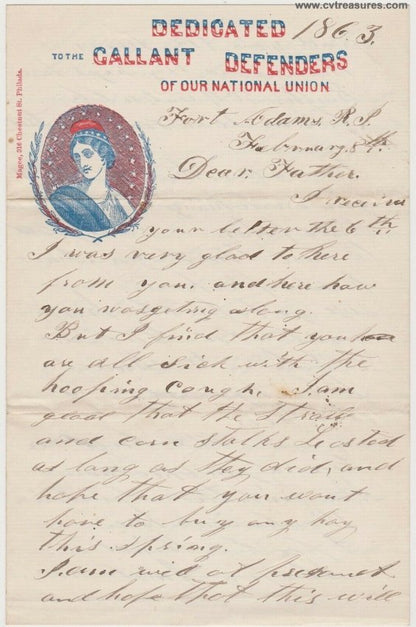 www.cvtreasures.com
DEDICATED 1863.
TO THE GALLANT DEFENDERS
OF OUR NATIONAL UNION
Magee, 316 Chestnut St. Philada.
Fort Adams, R.I.
February, 8th.
Dear. Father.
I receiv
your letter the 6th
I was very glad to here
from you. and here how
you was geting along.
But I find that you
are all Sick with the
hooping Cough, I am
glad that the Straw
and corn Stalks Lasted
as long as they did, and
hope that you wont
have to buy any hay
this. Spring.
I am well at presant
and hope that this will